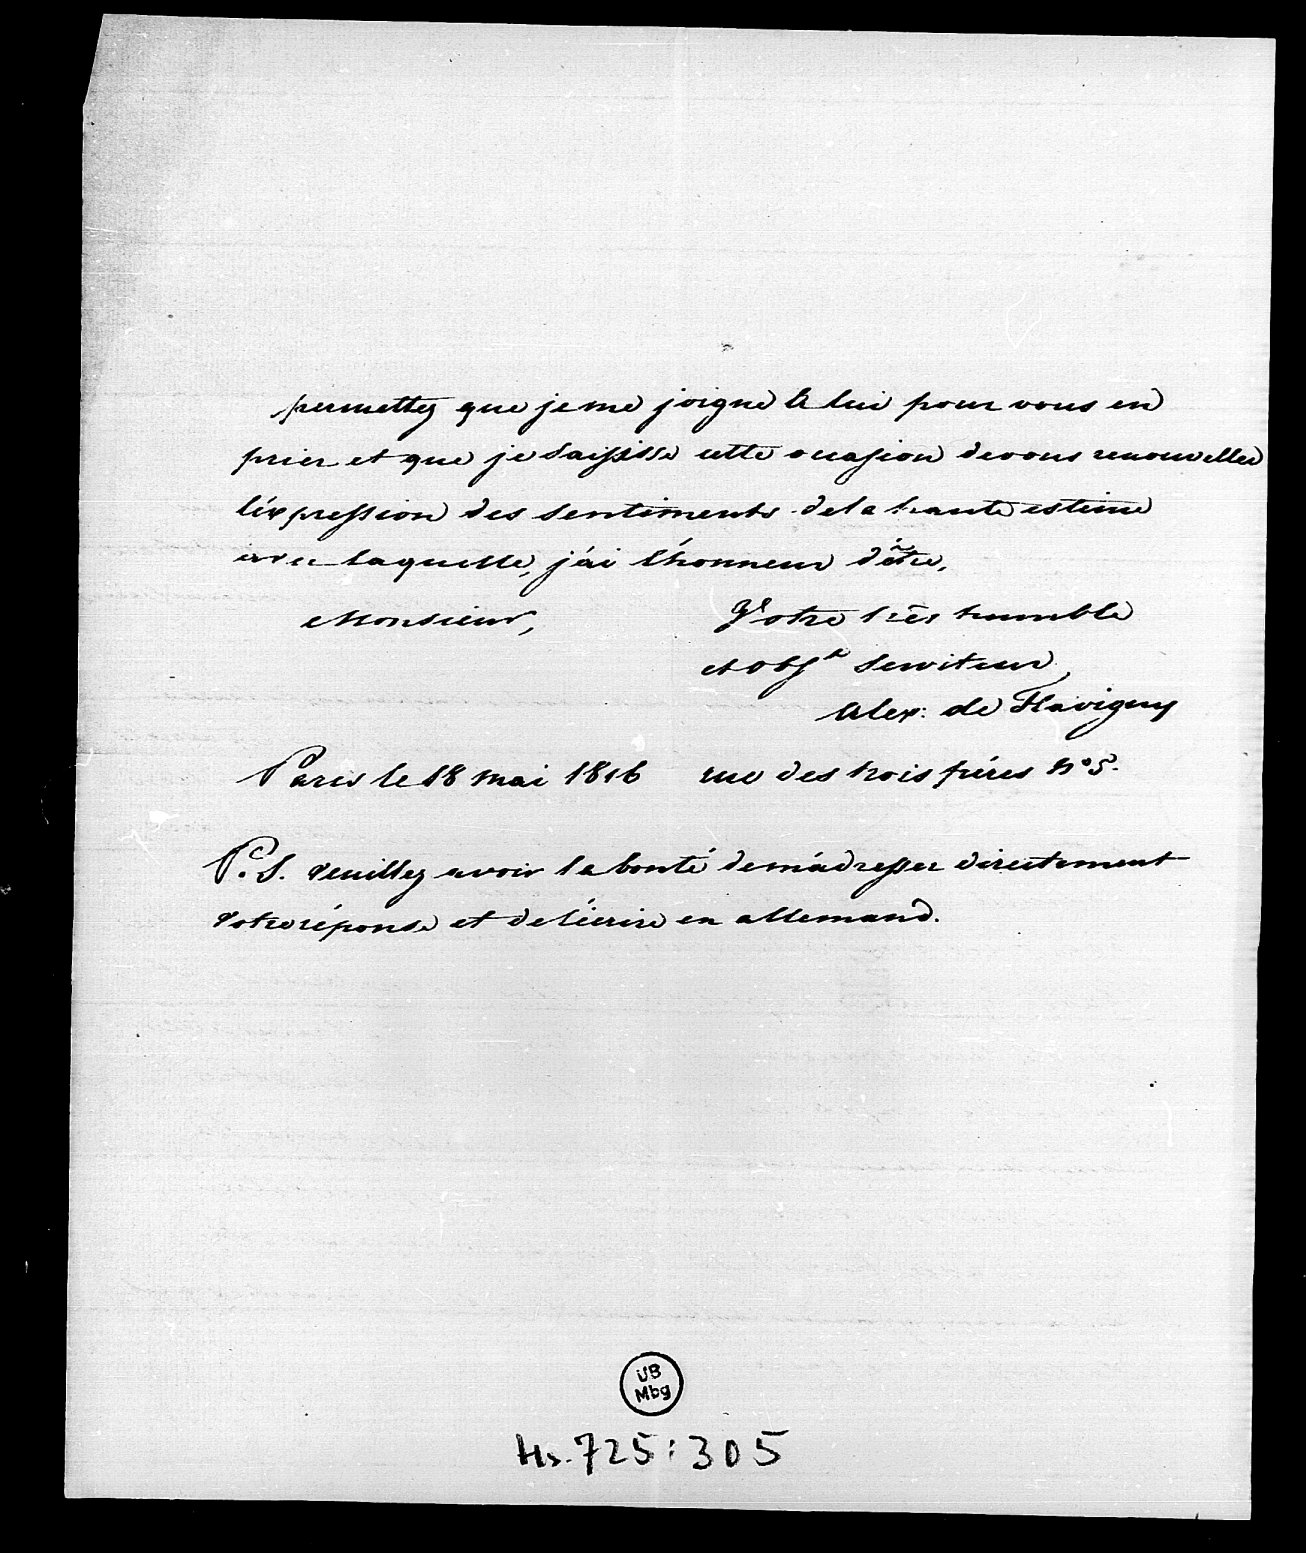 permettez que je me joigne à lui pour vous en
prier et que je saisisse cette occasion de vous renouveller
l'éxpression des sentiments de la haute estime
avec laquelle, j'ai l'honneur d'être,
Monsieur,
Votre très humble
et obst serviteur,
Alex: de Flavigny
Paris le 18 mai 1816 rue des trois fréres No 5.
P. S. Veuillez avoir la bonté de m'adresser directement
votre réponse et de l'écrire en allemand.
UB
Mbg
Hs. 725:305